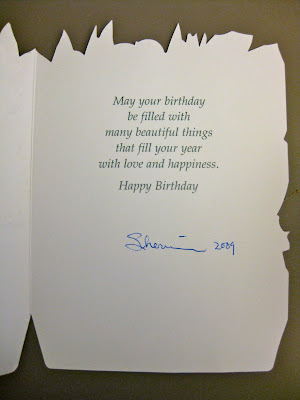 May your birthday
be filled with
many beautiful things
that fill your year
with love and happiness.
Happy Birthday
2009